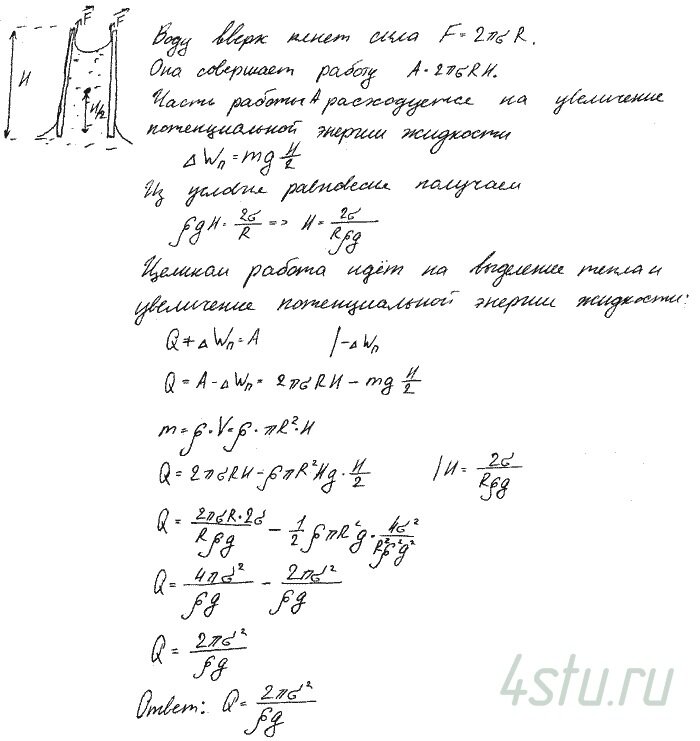 F F
H
H/2
Воду вверх тянет сила F = 2πσR.
Она совершает работу A = 2πσRH.
Часть работы A расходуется на увеличение
потенциальной энергии жидкости
ΔWп = mg H/2
Из условие равновесие получаем
ρgH = 2σ/R => H = 2σ/Rρg
Целиком работа идёт на выделение тепла и
увеличение потенциальной энергии жидкости:
Q + ΔWп = A |-ΔWп
Q = A - ΔWп = 2πσRH - mg H/2
m = ρ·V = ρ·πR²·H
Q = 2πσRH - ρπR²Hg · H/2 |H = 2σ/Rρg
Q = 2πσR·2σ/Rρg - 1/2 ρπR²g · 4σ²/R²ρ²g²
Q = 4πσ²/ρg - 2πσ²/ρg
Q = 2πσ²/ρg
Ответ: Q = 2πσ²/ρg
4stu.ru